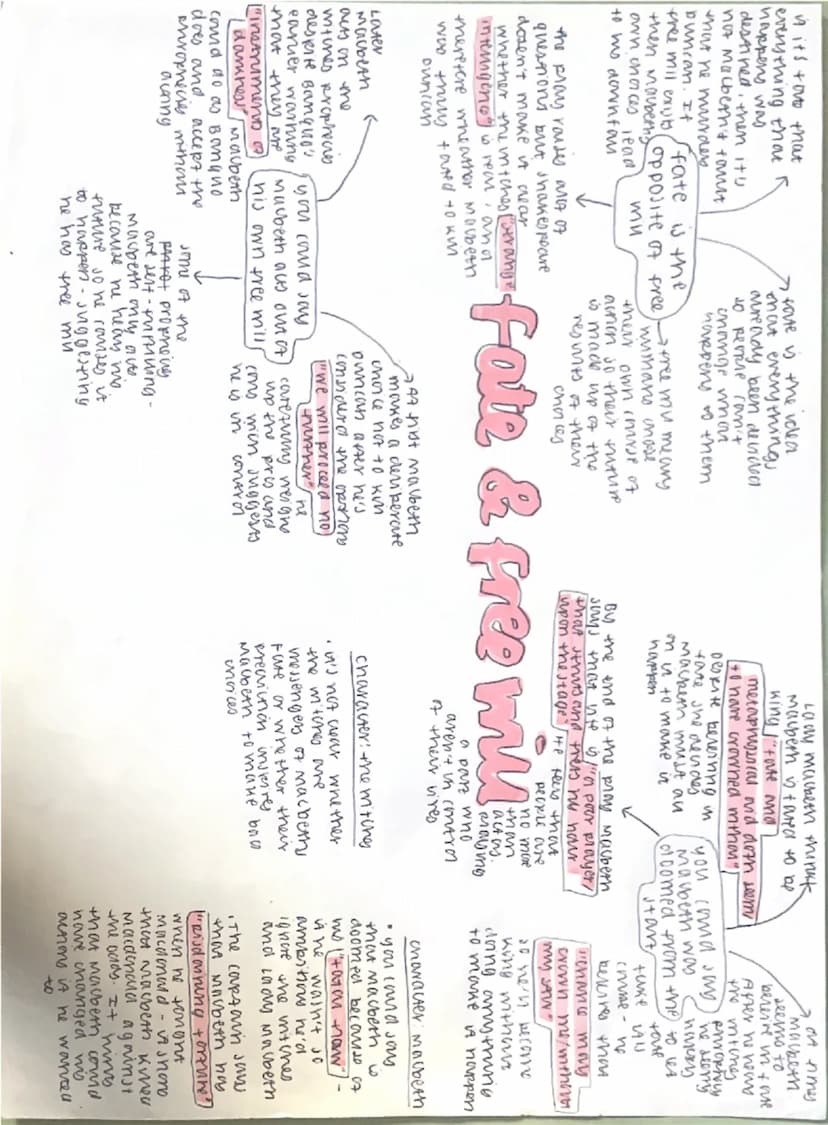 is it's fate that
everything that
happens was
destined, then it's
not Macbeth's fault
that he murders
Duncan. If
free will exists
then Macbeth's
own choices lead
to his downfall
fate is the
opposite of free
will
fate is the idea
that everything's
already been decided
so people can't
change what
happens to them
free will means
humans choose
their own course of
action so their future
is made up of the
results of their
choices
the play raises lots of
questions but shakespeare
doesn't make it clear
whether the witches "strange
intelligence" is real, and
therefore whether Macbeth
was truly fated to kill
duncan
Lady Macbeth thinks
Macbeth is fated to be
king "fate and
metaphysical aid doth seem
to have crowned withal"
Despite believing in
fate she decides
Macbeth must act
on it to make it
happen
you could say
Macbeth was
doomed from the
start
at times
Macbeth
seems to
believe in fate
After he hears
the witches
prophecy
he slowly
thinks
to let
fate
take its
course - he
believes that
"chance may
crown me/without
my stir"
so he'll become
king without
doing anything
to make it happen
By the end of the play Macbeth
says that life is "a poor player/
that struts and frets his hour
upon the stage" He feels that
people are
no more
than
actors
playing
a part who
aren't in control
of their lives
fate & free will
you could say
Macbeth acts out of
his own free will
Later
Macbeth
acts on the
witches prophecies
despite Banquo's
earlier warning
that they are
"instruments of
darkness" Macbeth
could do as Banquo
does and accept the
prophecies without
acting
some of the
prophecies
are self-fulfilling -
Macbeth only acts
because he hears his
future so he causes it
to happen - suggesting
he has free will
at first Macbeth
makes a deliberate
choice not to kill
Duncan after he's
considered the options
"we will proceed no
further" he
carefully weighs
up the pros and
cons which suggests
he's in control
character: the witches
• it's not clear whether
the witches are
messengers of Macbeth's
fate or whether their
prediction inspires
Macbeth to make bad
choices
character: Macbeth
• you could say
that Macbeth is
doomed because of
his "fatal flaw" -
if he wasn't so
ambitious he'd
ignore the witches
and Lady Macbeth
• The captain says
that Macbeth was
"disdaining fortune"
when he fought
Macdonald - it shows
that Macbeth killed
Macdonald against
the odds. It hints
that Macbeth could
have changed his
destiny if he wanted
to